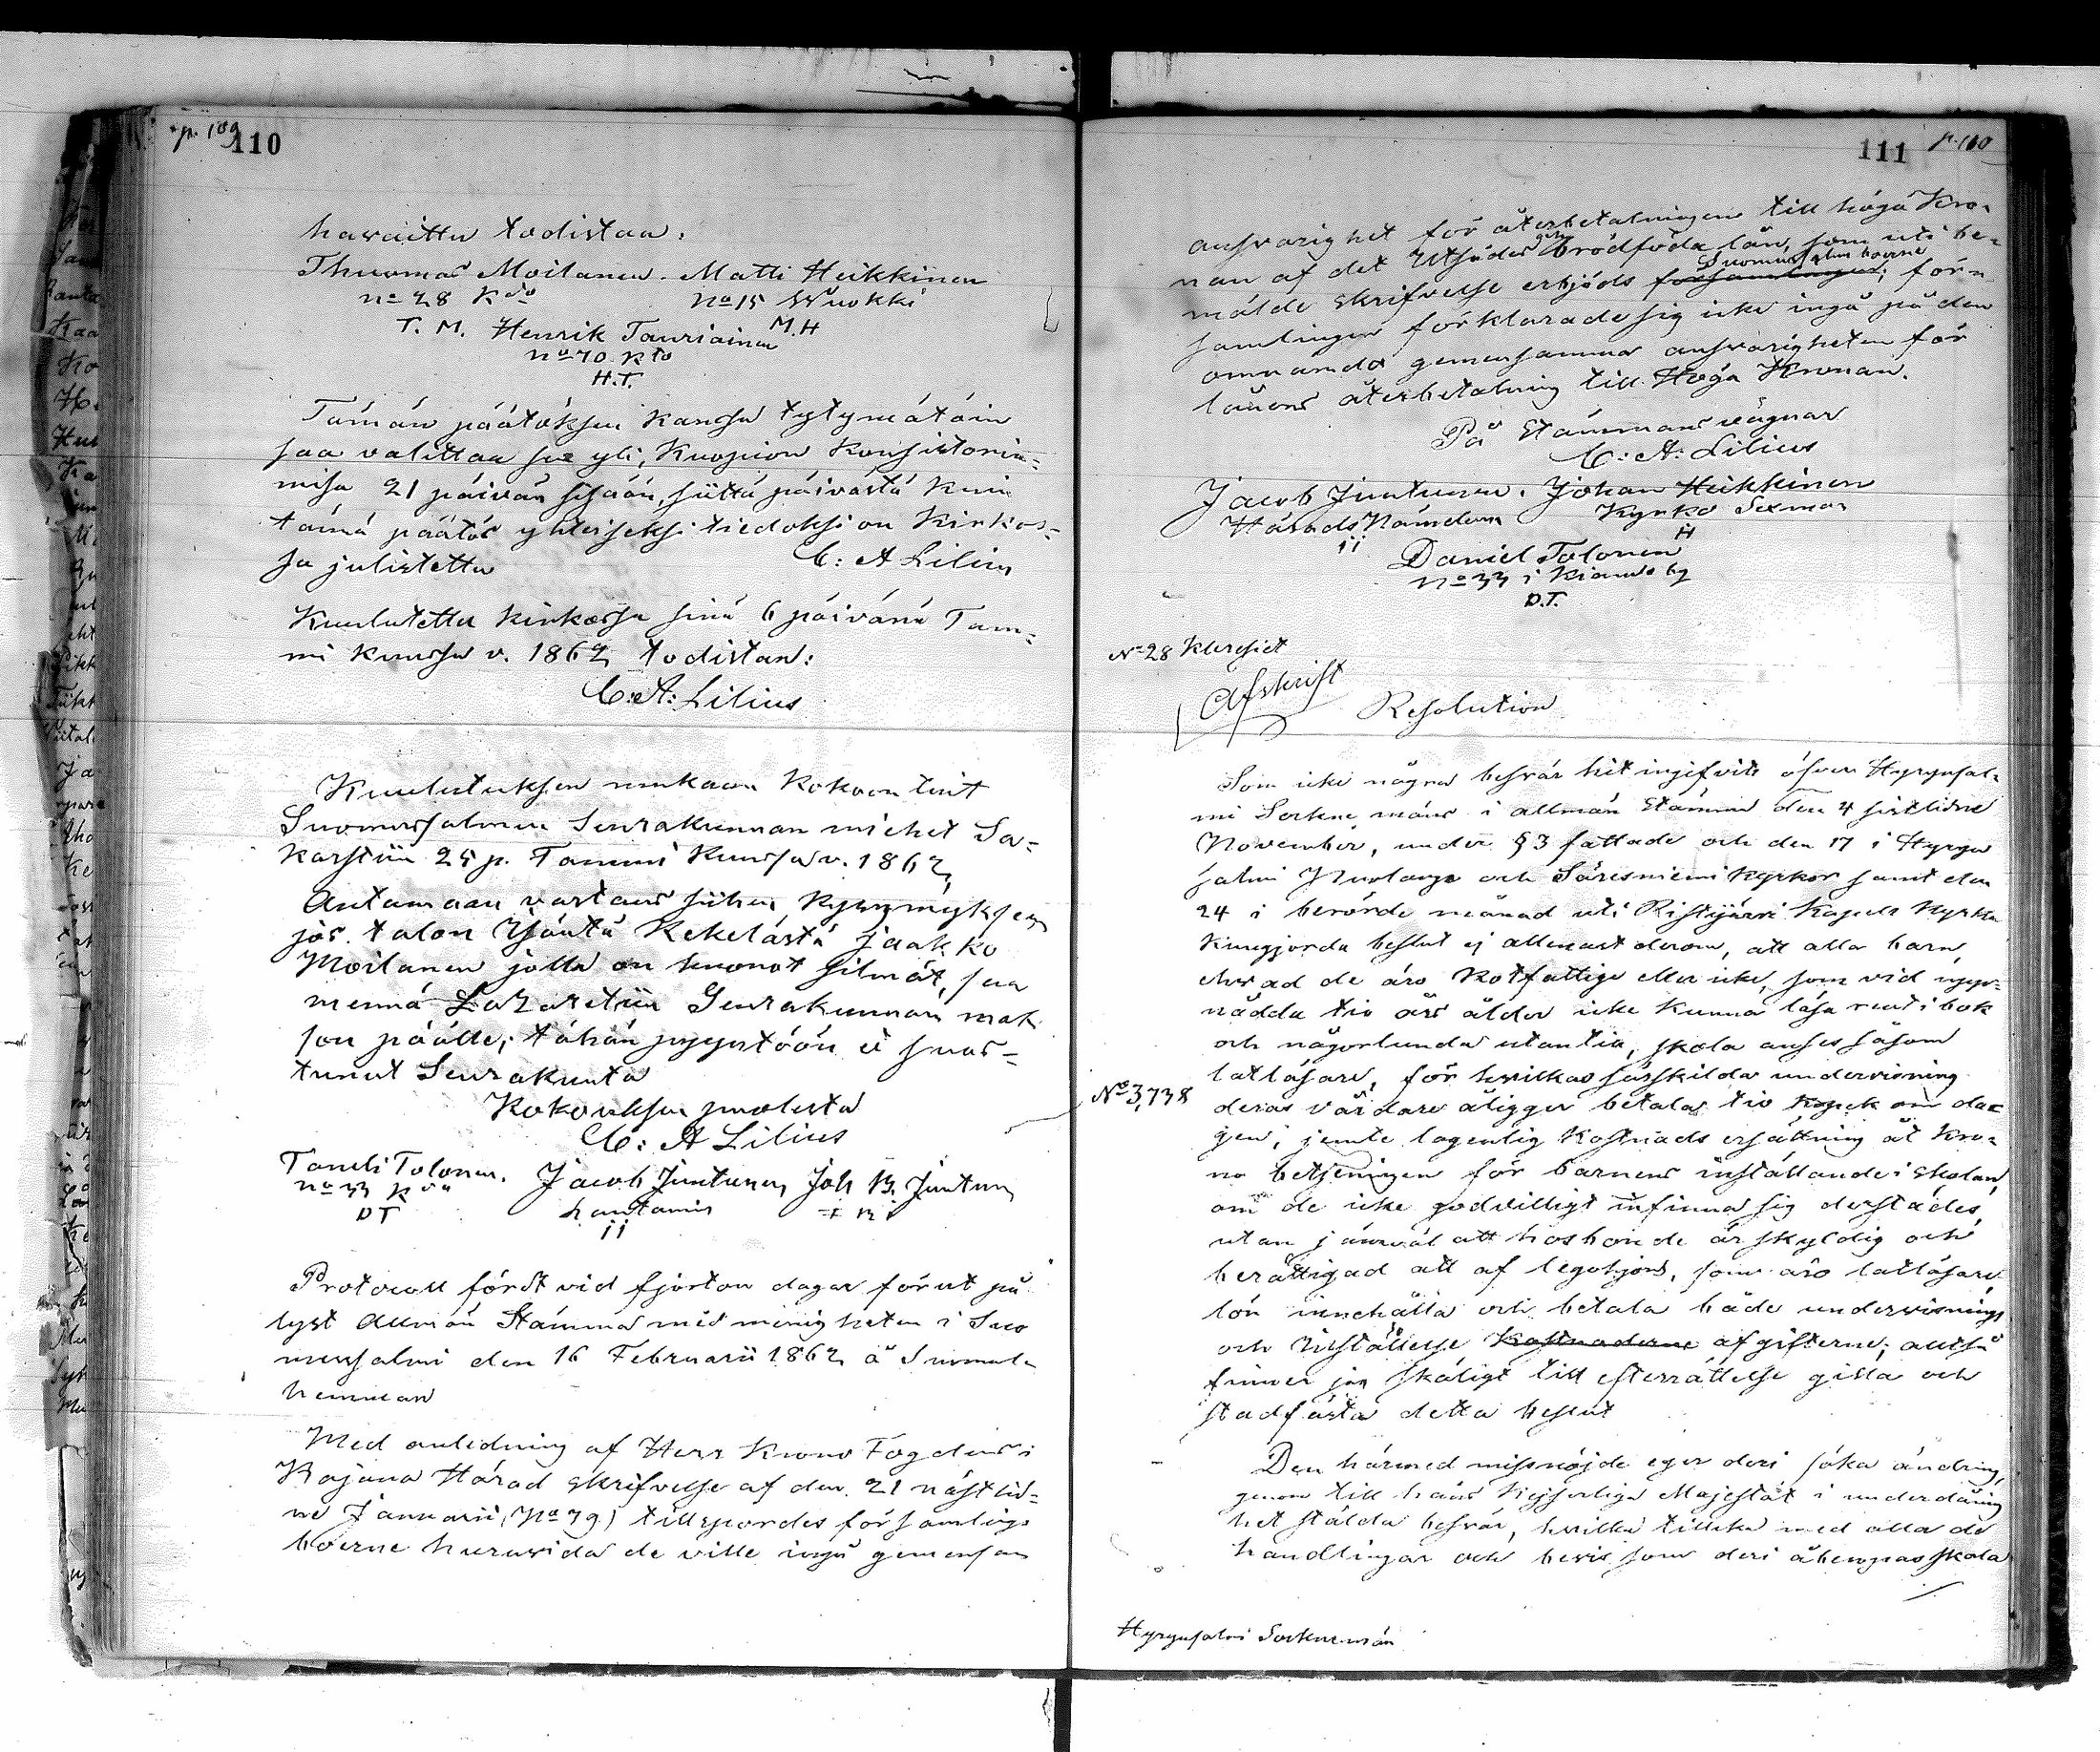 p. 109
110
havaittu todistaa:
Thuomas Moilanen. Matti Heikkinen
No 28 Kdo No 15 Wuokki
T. M. Henrik Tauriainen M.H
No 70 Kto
H.T.
Tämän päätöksen kanssa tytymätöin
saa valittaa sen yli, Kuopion Konsistoriu=
missa 21 päivän sisään, siittä päivästä kuin
tämä päätös yhteiseksi tiedoksi on Kirkos=
sa julistettu C: A Lilius
Kuulutettu kirkossa sinä 6 päivänä Tam=
mi kuussa v. 1862 todistan:
C: A: Lilius
Kuulutuksen mukaan kokoontuit
Suomussalmen Seurakunnan miehet Sa=
karstiin 25 p. Tammi kuussa v. 1862,
Antamaan vastaus siihen kysymyksen
jos talon Isäntä Kekelästä Jaakko
Moilanen jolla on huonot silmät, saa
mennä Lazaretiin Seurakunnan mak
son päälle; tähän pyyntöön ei suos=
tunut Seurakunta
Kokouksen puolesta
C: A Lilius
Taneli Tolonen. Jacob Juntunen Joh Juntun
No 33 DT Lautamies
Protocoll fördt vid fjorton dagar förut på
lyst Allmän Stämma med menigheten i Suo
mussalmi den 16 Februarii 1862 å
hemman
Med anledning af Herr Krono Fogdens i
Kajana Härad skrifvelse af den 21 nästlid=
ne Januarii, (No 79) tillspordes försämlings
boerne huruvida de ville ingå gemensam
111 p. 110
ansvarighet för återbetalningen till höga Kro=
nan af det Utsädes och brödföda lån, som uti be=
mälde skrifvelse erbjöds Suomussalmi boerne församlingen; för=
samlingen förklarade sig icke ingå på den
omnämda gemensamma ansvarigheten för
lånens återbetalning till Höga Kronan.
På Stämmans vägnar
C: A: Lilius
Jacob Juntunen. Johan Heikkinen
Härads Nämdem Kyrko Sexman
H
Daniel Tolonen
No 33 i Kianda by
D.T.
No 28 Kleresiet
Afskrift
Resolution
Som icke några besvär hit ingifvits öfver Hyrynsal=
mi Sockne mäns i allmän Stämma den 4 sistlidne
November, under § 3 fattade och den 17 i Hyryn
salmi och Säresniemi Kyrkor samt den
24 i berörde månad uti Ristijärvi Kapels Kyrka
kungjorda beslut ej allenast derom, att alla barn,
ehvad de äro Rotfattige eller icke, som vid upp=
nådda tio års ålder icke kunna läsa rent i bok
och någorlunda utantill, skola anses såsom
latläsare, för hvilkas särskilda undervisning
No 3,738
deras vårdare åligger betala tio kopek om da=
gen, jemte lagenlig Kostnads ersättning åt Kro=
no betjeningen för barnens inställande i skolan,
om de icke godvilligt infinna sig derstädes,
utan jemväl att hosbonde är skyldig och
berättigad att af legohjons, som äro latläsare
lön innehålla och betala både undervisnings
och Inställelse Kostnaderne afgifterne; alltså
finner jag skäligt till efterrättelse gilla och
stadfästa detta beslut
Den härmed missnöjde eger deri söka ändring,
genom till hans Kejserliga Majestät i underdånig
het stälda besvär, hvilka tillika med alla de
handlingar och bevis som deri åberopas skola
Hyrynsalmi Sockne män